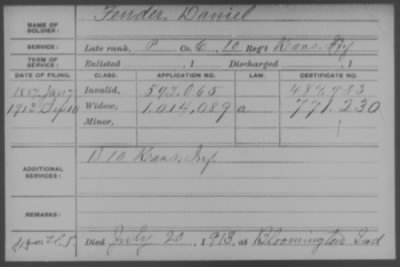 NAME OF SOLDIER: Fender, Daniel
SERVICE: Late rank, P Co. C, 10 Reg't Kans. Inf
TERM OF SERVICE: Enlisted , 1 Discharged , 1
DATE OF FILING. CLASS. APPLICATION NO. LAW. CERTIFICATE NO.
1887 Jan 7 Invalid, 593.065
1913 Sep 10 Widow, 1.014.089 a 771.230
Minor,
ADDITIONAL SERVICES: B 10 Kans. Inf.
REMARKS:
Died July 20, 1913, at Bloomington Ind